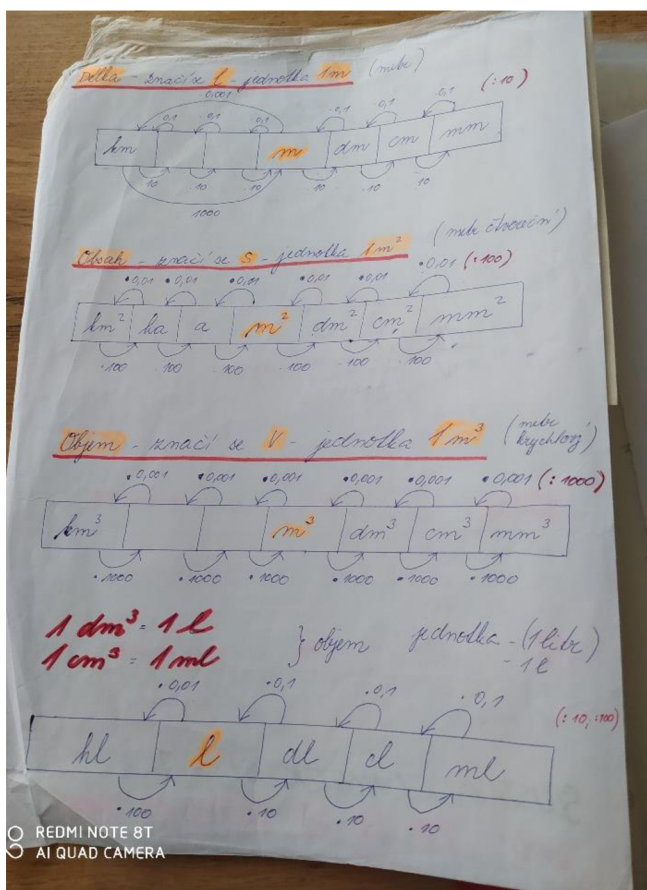 Délka - značí se l - jednotka 1m (metr)
·0,001 (:10)
·0,1 ·0,1 ·0,1 ·0,1 ·0,1 ·0,1
km m dm cm mm
·10 ·10 ·10 ·10 ·10 ·10
·1000
Obsah - značí se S - jednotka 1m² (metr čtvereční)
·0,01 ·0,01 ·0,01 ·0,01 ·0,01 ·0,01 (:100)
km² ha a m² dm² cm² mm²
·100 ·100 ·100 ·100 ·100 ·100
Objem - značí se V - jednotka 1m³ (metr krychlový)
·0,001 ·0,001 ·0,001 ·0,001 ·0,001 ·0,001 (:1000)
km³ m³ dm³ cm³ mm³
·1000 ·1000 ·1000 ·1000 ·1000 ·1000
1 dm³ = 1 l
1 cm³ = 1 ml
} objem jednotka - (1 litr)
- 1 l
·0,01 ·0,1 ·0,1 ·0,1 (:10, :100)
hl l dl cl ml
·100 ·10 ·10 ·10
REDMI NOTE 8T
AI QUAD CAMERA